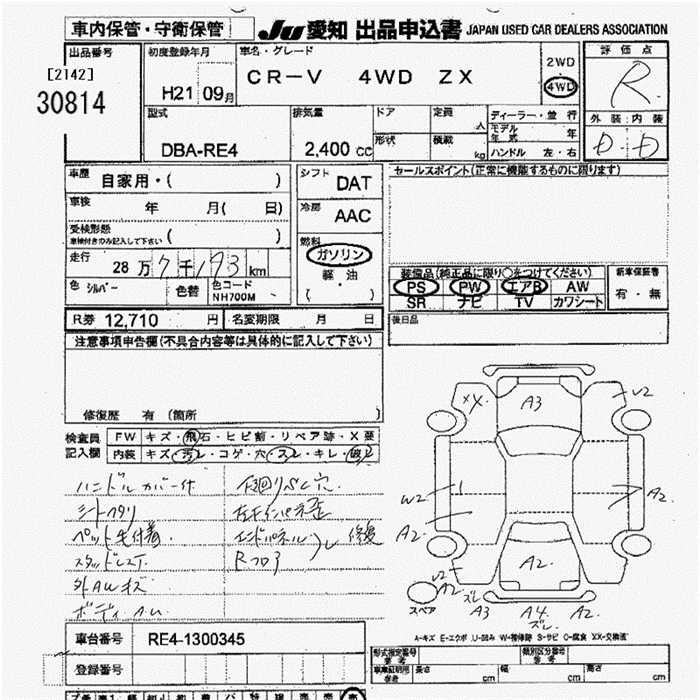 車内保管・守衛保管
Ju 愛知 出品申込書 JAPAN USED CAR DEALERS ASSOCIATION
出品番号
[2142]
30814
初度登録年月
H21 09月
車名・グレード
CR-V 4WD ZX
2WD
4WD
評価点
R
外装:内装
D D
型式
DBA-RE4
排気量
2,400 cc
ドア
形状
定員
人
積載
kg
ディーラー・並行
モデル年式 年
ハンドル 左・右
車歴 自家用・( )
車検 年 月( 日)
受検形態
車検付きのみ記入して下さい ( )
走行 28万7千193km
色 シルバー 色替 色コード
NH700M
シフト DAT
冷房 AAC
燃料
ガソリン
軽油
( )
セールスポイント(正常に機能するものに限ります)
装備品(純正品に限り○をつけてください)
PS PW エアB AW
SR ナビ TV カワシート
新車保証書
有・無
後日品
R券 12,710 円 名変期限 月 日
注意事項申告欄(不具合内容等は具体的に記入して下さい)
修復歴 有(箇所 )
検査員
記入欄
FW キズ・飛石・ヒビ割・リペア跡・X要
内装 キズ・汚レ・コゲ・穴・スレ・キレ・破レ
ハンドルカバー付
シートヘタリ
ペット毛付着
スタッドレスT
外AWキズ
Rフロア
修復
XX
A3
V2
W2
A2
A2
A2
V2
A2
ズレ
A3
A4
ズレ
A2
スペア
A-キズ E-エクボ U-凹み W-補修跡 S-サビ C-腐食 XX-交換済
車台番号 RE4-1300345
登録番号
形式指定番号
参考
類別区分番号
参考
車庫証明用
参考
長さ cm 幅 cm 高さ cm